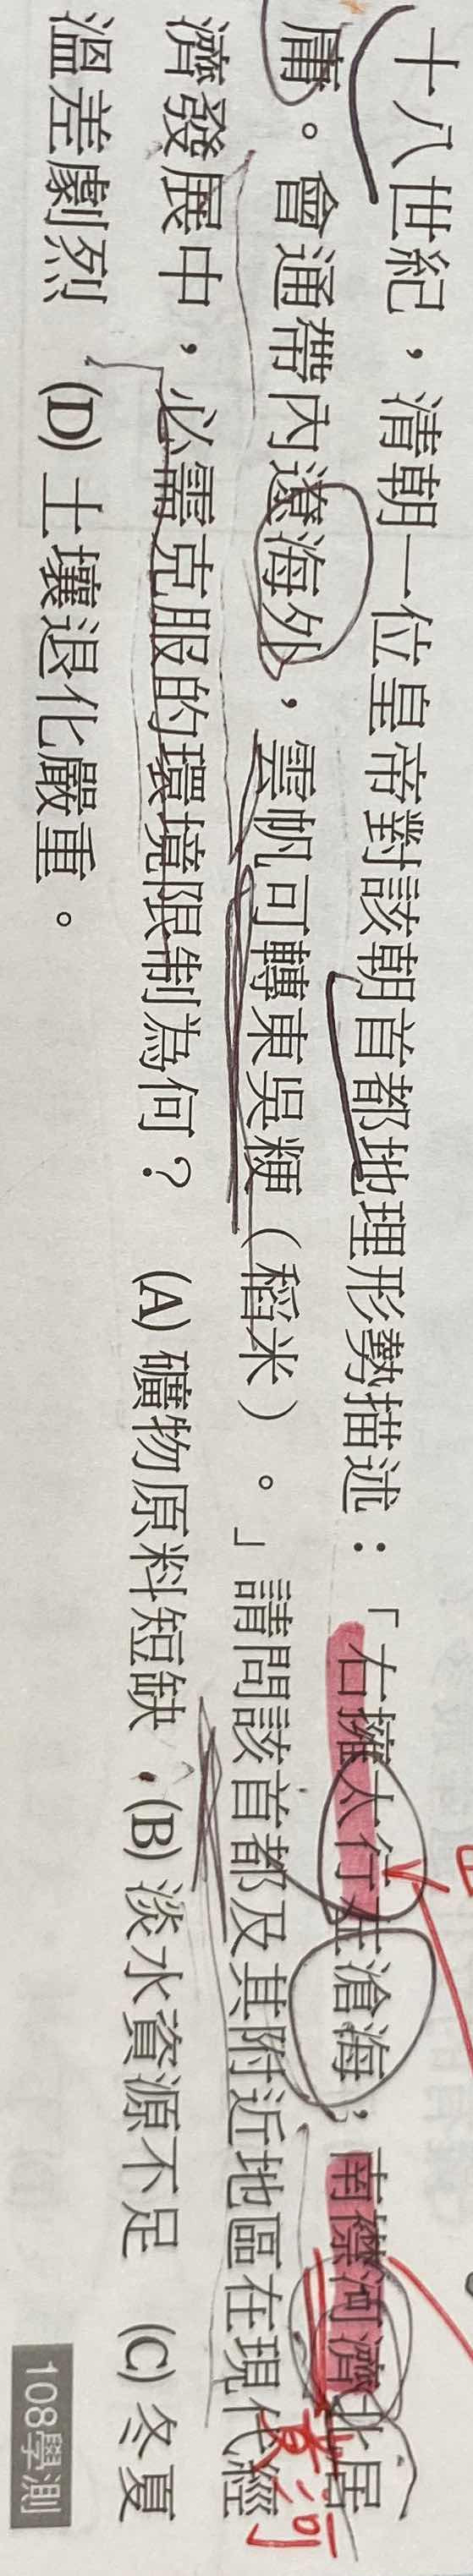 十八世紀，清朝一位皇帝對該朝首都地理形勢描述：「右擁太行左滄海，南襟河濟北居
庸。會通帶內遼海外，雲帆可轉東吳粳（稻米）。」請問該首都及其附近地區在現代經
濟發展中，必需克服的環境限制為何？ (A) 礦物原料短缺 (B) 淡水資源不足 (C) 冬夏
溫差劇烈 (D) 土壤退化嚴重。
108學測
黃河